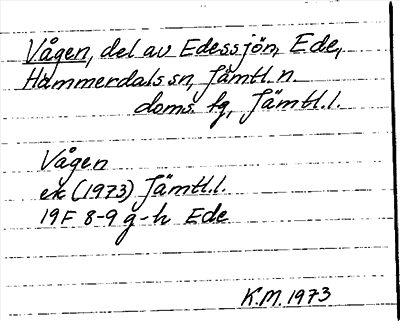 Vågen, del av Edessjön, Ede,
Hammerdals sn, Jämtl. n.
doms. fg, Jämtl. l.
Vågen
ek (1973) Jämtl. l.
19F 8-9 g-h Ede
K.M. 1973